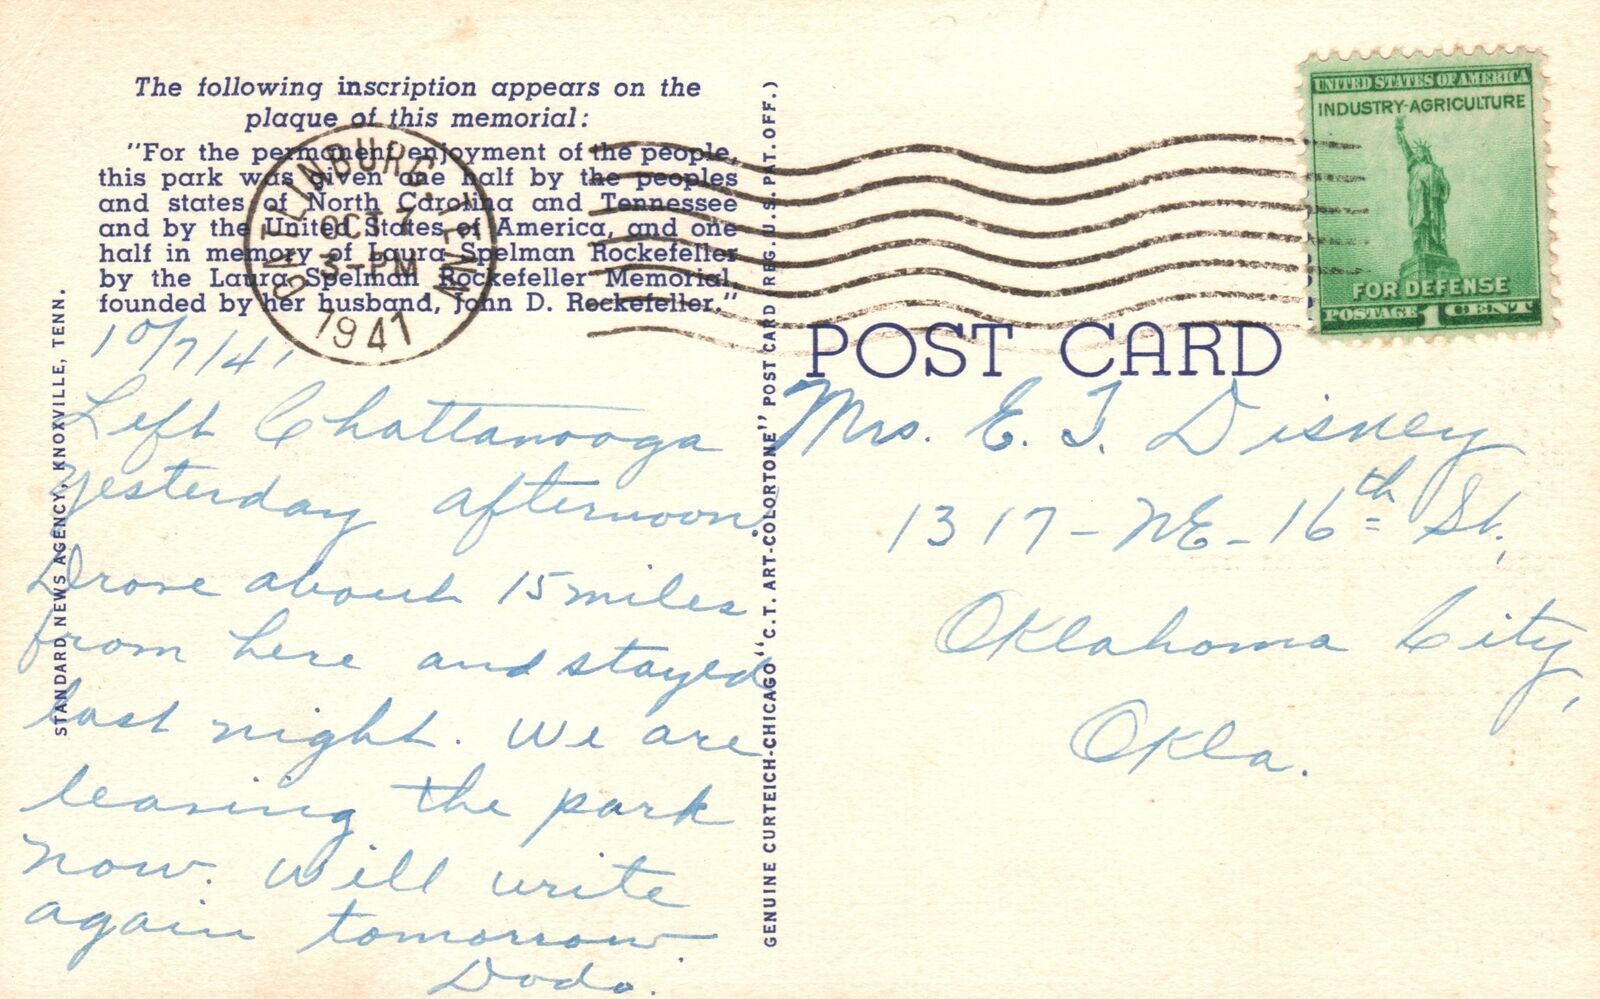 The following inscription appears on the
plaque of this memorial:
"For the permanent enjoyment of the people,
this park was given one half by the peoples
and states of North Carolina and Tennessee
and by the United States of America, and one
half in memory of Laura Spelman Rockefeller
by the Laura Spelman Rockefeller Memorial,
founded by her husband, John D. Rockefeller."
GATLINBURG, TENN.
OCT 7
3-PM
1941
10/7/41
Left Chattanooga
yesterday afternoon.
Drove about 15 miles
from here and stayed
last night. We are
leaving the park
now. Will write
again tomorrow
Dodo.
STANDARD NEWS AGENCY, KNOXVILLE, TENN.
GENUINE CURTEICH-CHICAGO "C.T. ART-COLORTONE" POST CARD REG. U.S. PAT. OFF.)
UNITED STATES OF AMERICA
INDUSTRY-AGRICULTURE
FOR DEFENSE
POSTAGE 1 CENT
POST CARD
Mrs. E. T. Disney
1317-NE-16th St.,
Oklahoma City,
Okla.